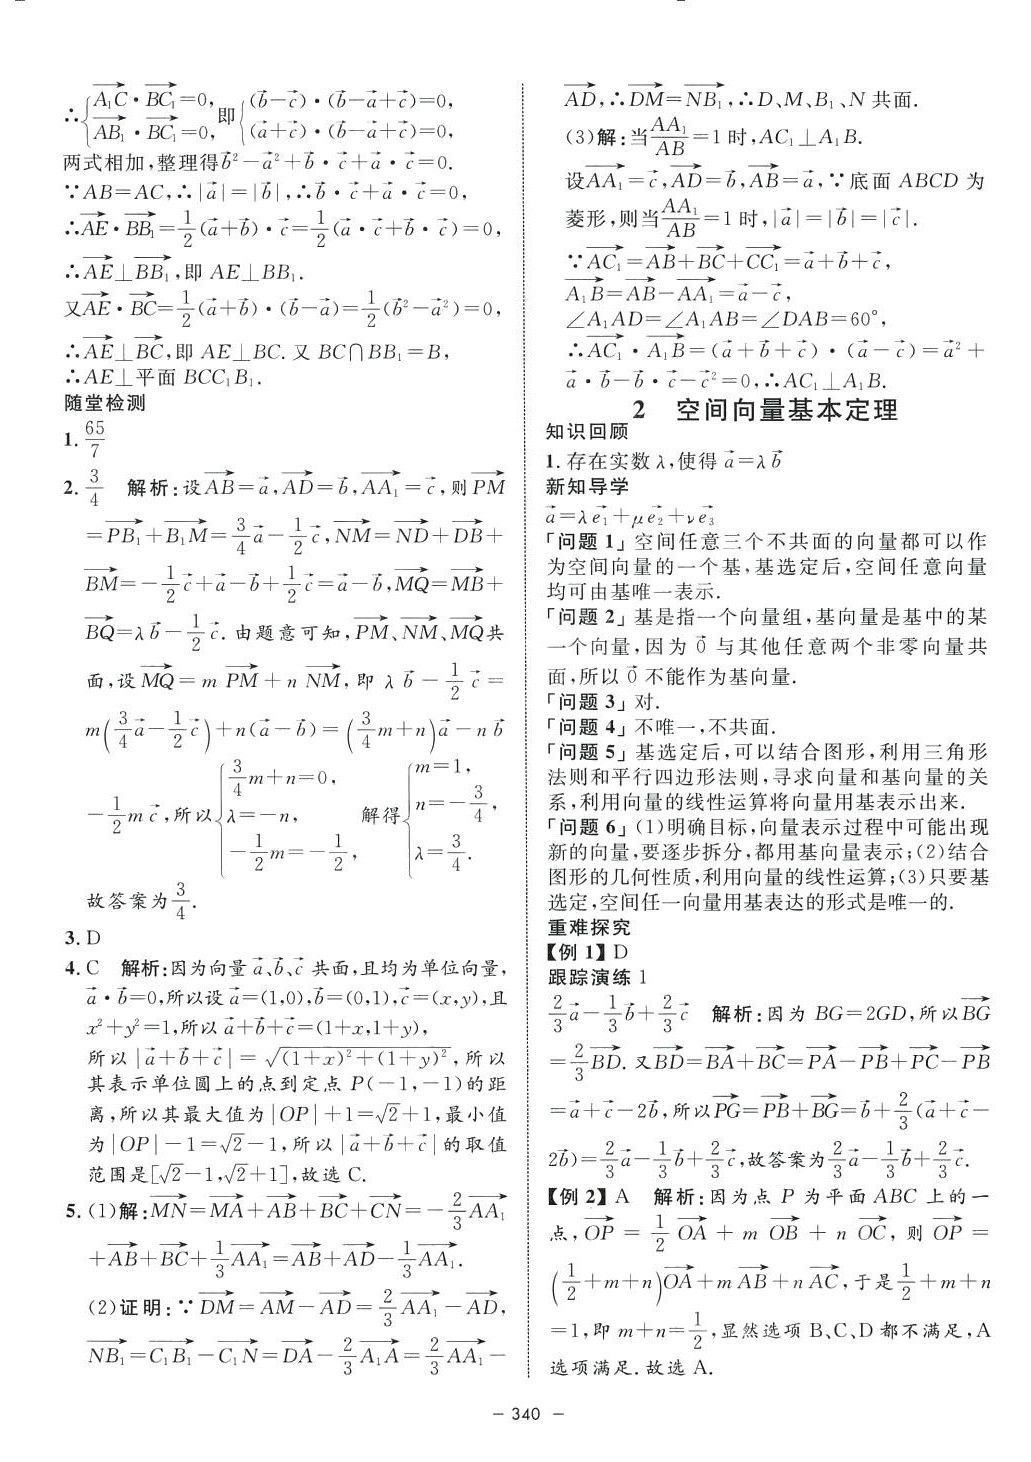 ∴{A₁C⃗·BC₁⃗=0, AB₁⃗·BC₁⃗=0, 即{(b⃗-c⃗)·(b⃗-a⃗+c⃗)=0, (a⃗+c⃗)·(b⃗-a⃗+c⃗)=0,
两式相加,整理得b⃗²-a⃗²+b⃗·c⃗+a⃗·c⃗=0.
∵AB=AC,∴|a⃗|=|b⃗|,∴b⃗·c⃗+a⃗·c⃗=0,
∴AE⃗·BB₁⃗=1/2(a⃗+b⃗)·c⃗=1/2(a⃗·c⃗+b⃗·c⃗)=0,
∴AE⃗⊥BB₁⃗,即 AE⊥BB₁.
又AE⃗·BC⃗=1/2(a⃗+b⃗)·(b⃗-a⃗)=1/2(b⃗²-a⃗²)=0,
∴AE⃗⊥BC⃗,即 AE⊥BC. 又 BC∩BB₁=B,
∴AE⊥平面 BCC₁B₁.
随堂检测
1. 65/7
2. 3/4 解析:设AB⃗=a⃗,AD⃗=b⃗,AA₁⃗=c⃗,则PM⃗
=PB₁⃗+B₁M⃗=3/4a⃗-1/2c⃗,NM⃗=ND⃗+DB⃗+
BM⃗=-1/2c⃗+a⃗-b⃗+1/2c⃗=a⃗-b⃗,MQ⃗=MB⃗+
BQ⃗=λb⃗-1/2c⃗. 由题意可知,PM⃗、NM⃗、MQ⃗共
面,设MQ⃗=mPM⃗+nNM⃗,即 λb⃗-1/2c⃗=
m(3/4a⃗-1/2c⃗)+n(a⃗-b⃗)=(3/4m+n)a⃗-nb⃗
-1/2mc⃗,所以{3/4m+n=0, λ=-n, -1/2m=-1/2, 解得{m=1, n=-3/4, λ=3/4.
故答案为3/4.
3. D
4. C 解析:因为向量a⃗、b⃗、c⃗共面,且均为单位向量,
a⃗·b⃗=0,所以设a⃗=(1,0),b⃗=(0,1),c⃗=(x,y),且
x²+y²=1,所以a⃗+b⃗+c⃗=(1+x,1+y),
所以|a⃗+b⃗+c⃗|=√((1+x)²+(1+y)²),所以
其表示单位圆上的点到定点 P(-1,-1)的距
离,所以其最大值为|OP|+1=√2+1,最小值
为|OP|-1=√2-1,所以|a⃗+b⃗+c⃗|的取值
范围是[√2-1,√2+1],故选 C.
5. (1)解:MN⃗=MA⃗+AB⃗+BC⃗+CN⃗=-2/3AA₁⃗
+AB⃗+BC⃗+1/3AA₁⃗=AB⃗+AD⃗-1/3AA₁⃗.
(2)证明:∵DM⃗=AM⃗-AD⃗=2/3AA₁⃗-AD⃗,
NB₁⃗=C₁B₁⃗-C₁N⃗=DA⃗-2/3A₁A⃗=2/3AA₁⃗-
AD⃗,∴DM⃗=NB₁⃗,∴D、M、B₁、N 共面.
(3)解:当AA₁/AB=1时,AC₁⊥A₁B.
设AA₁⃗=c⃗,AD⃗=b⃗,AB⃗=a⃗,∵底面 ABCD 为
菱形,则当AA₁/AB=1时,|a⃗|=|b⃗|=|c⃗|.
∵AC₁⃗=AB⃗+BC⃗+CC₁⃗=a⃗+b⃗+c⃗,
A₁B⃗=AB⃗-AA₁⃗=a⃗-c⃗,
∠A₁AD=∠A₁AB=∠DAB=60°,
∴AC₁⃗·A₁B⃗=(a⃗+b⃗+c⃗)·(a⃗-c⃗)=a⃗²+
a⃗·b⃗-b⃗·c⃗-c⃗²=0,∴AC₁⊥A₁B.
2 空间向量基本定理
知识回顾
1. 存在实数 λ,使得 a⃗=λb⃗
新知导学
a⃗=λe₁⃗+μe₂⃗+νe₃⃗
「问题 1」空间任意三个不共面的向量都可以作
为空间向量的一个基,基选定后,空间任意向量
均可由基唯一表示.
「问题 2」基是指一个向量组,基向量是基中的某
一个向量,因为 0⃗ 与其他任意两个非零向量共
面,所以 0⃗ 不能作为基向量.
「问题 3」对.
「问题 4」不唯一,不共面.
「问题 5」基选定后,可以结合图形,利用三角形
法则和平行四边形法则,寻求向量和基向量的关
系,利用向量的线性运算将向量用基表示出来.
「问题 6」(1)明确目标,向量表示过程中可能出现
新的向量,要逐步拆分,都用基向量表示;(2)结合
图形的几何性质,利用向量的线性运算;(3)只要基
选定,空间任一向量用基表达的形式是唯一的.
重难探究
【例 1】D
跟踪演练 1
2/3a⃗-1/3b⃗+2/3c⃗ 解析:因为 BG=2GD,所以BG⃗
=2/3BD⃗. 又BD⃗=BA⃗+BC⃗=PA⃗-PB⃗+PC⃗-PB⃗
=a⃗+c⃗-2b⃗,所以PG⃗=PB⃗+BG⃗=b⃗+2/3(a⃗+c⃗-
2b⃗)=2/3a⃗-1/3b⃗+2/3c⃗,故答案为2/3a⃗-1/3b⃗+2/3c⃗.
【例 2】A 解析:因为点 P 为平面 ABC 上的一
点,OP⃗=1/2OA⃗+mOB⃗+nOC⃗,则 OP⃗=
(1/2+m+n)OA⃗+mAB⃗+nAC⃗,于是1/2+m+n
=1,即 m+n=1/2,显然选项 B、C、D 都不满足,A
选项满足.故选 A.
- 340 -